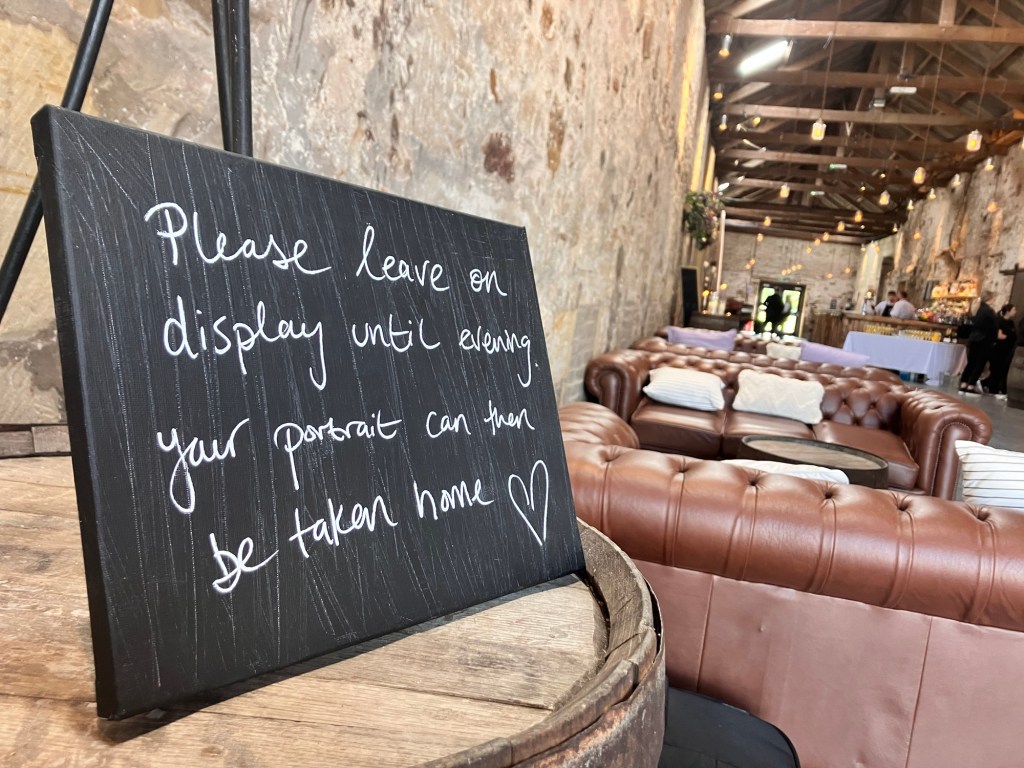 Please leave on
display until evening.
your portrait can then
be taken home ♡